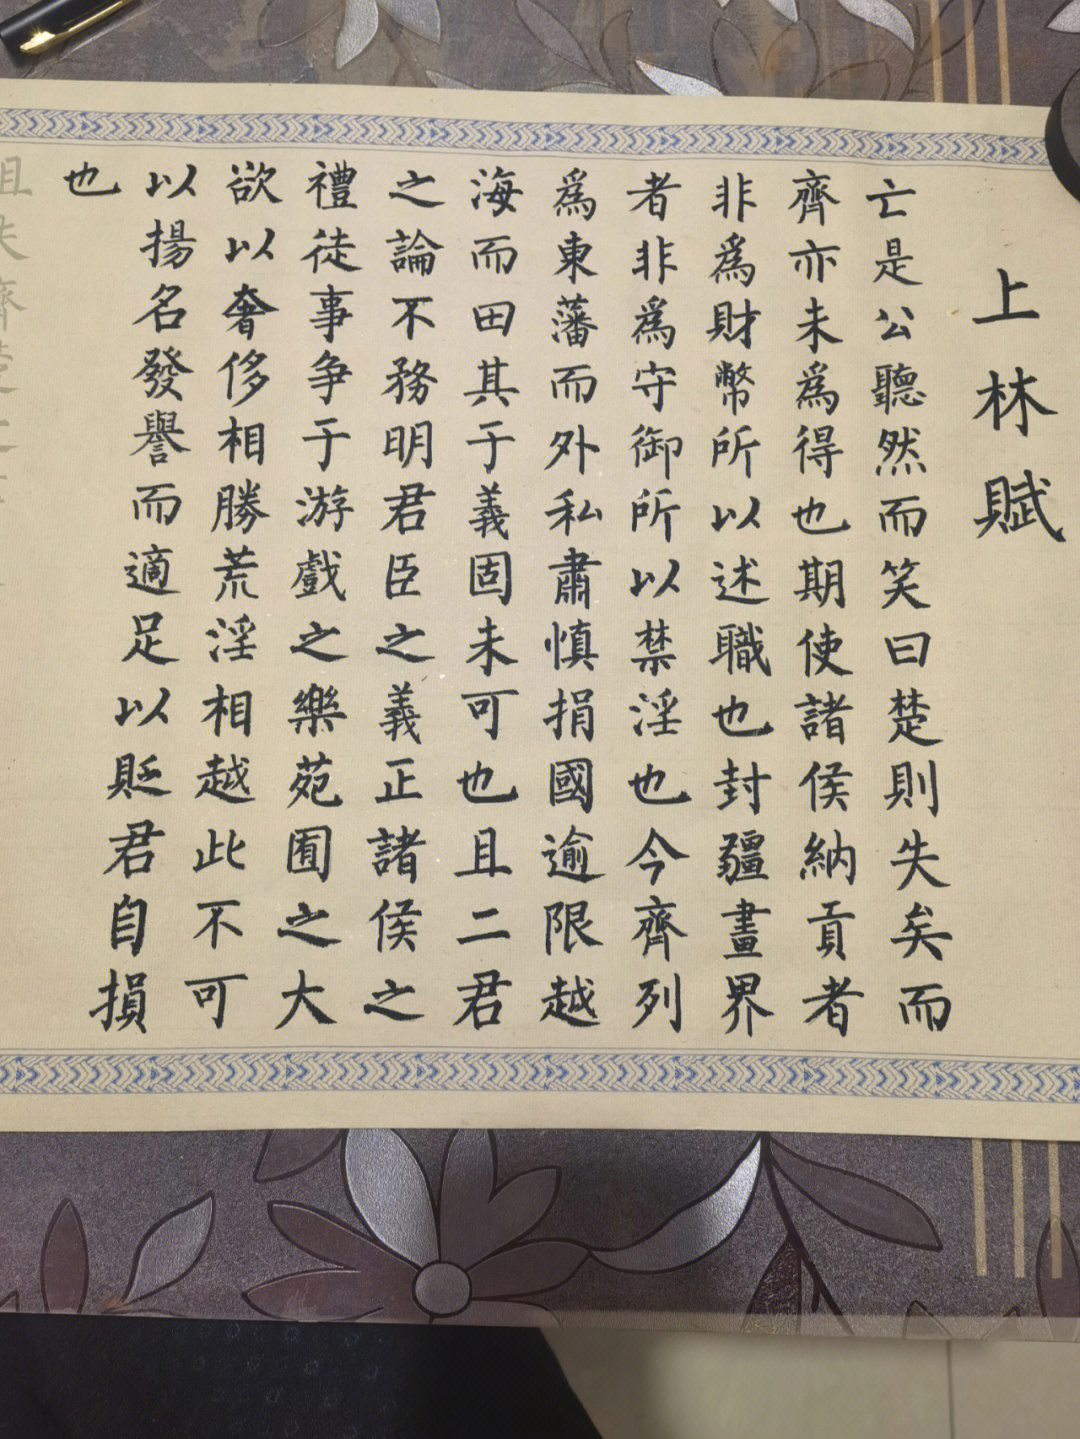 上林賦
亡是公聽然而笑曰楚則失矣而
齊亦未為得也期使諸侯納貢者
非為財幣所以述職也封疆畫界
者非為守御所以禁淫也今齊列
為東藩而外私肅慎捐國逾限越
海而田其于義固未可也且二君
之論不務明君臣之義正諸侯之
禮徒事争于游戲之樂苑囿之大
欲以奢侈相勝荒淫相越此不可
以揚名發譽而適足以貶君自損
也